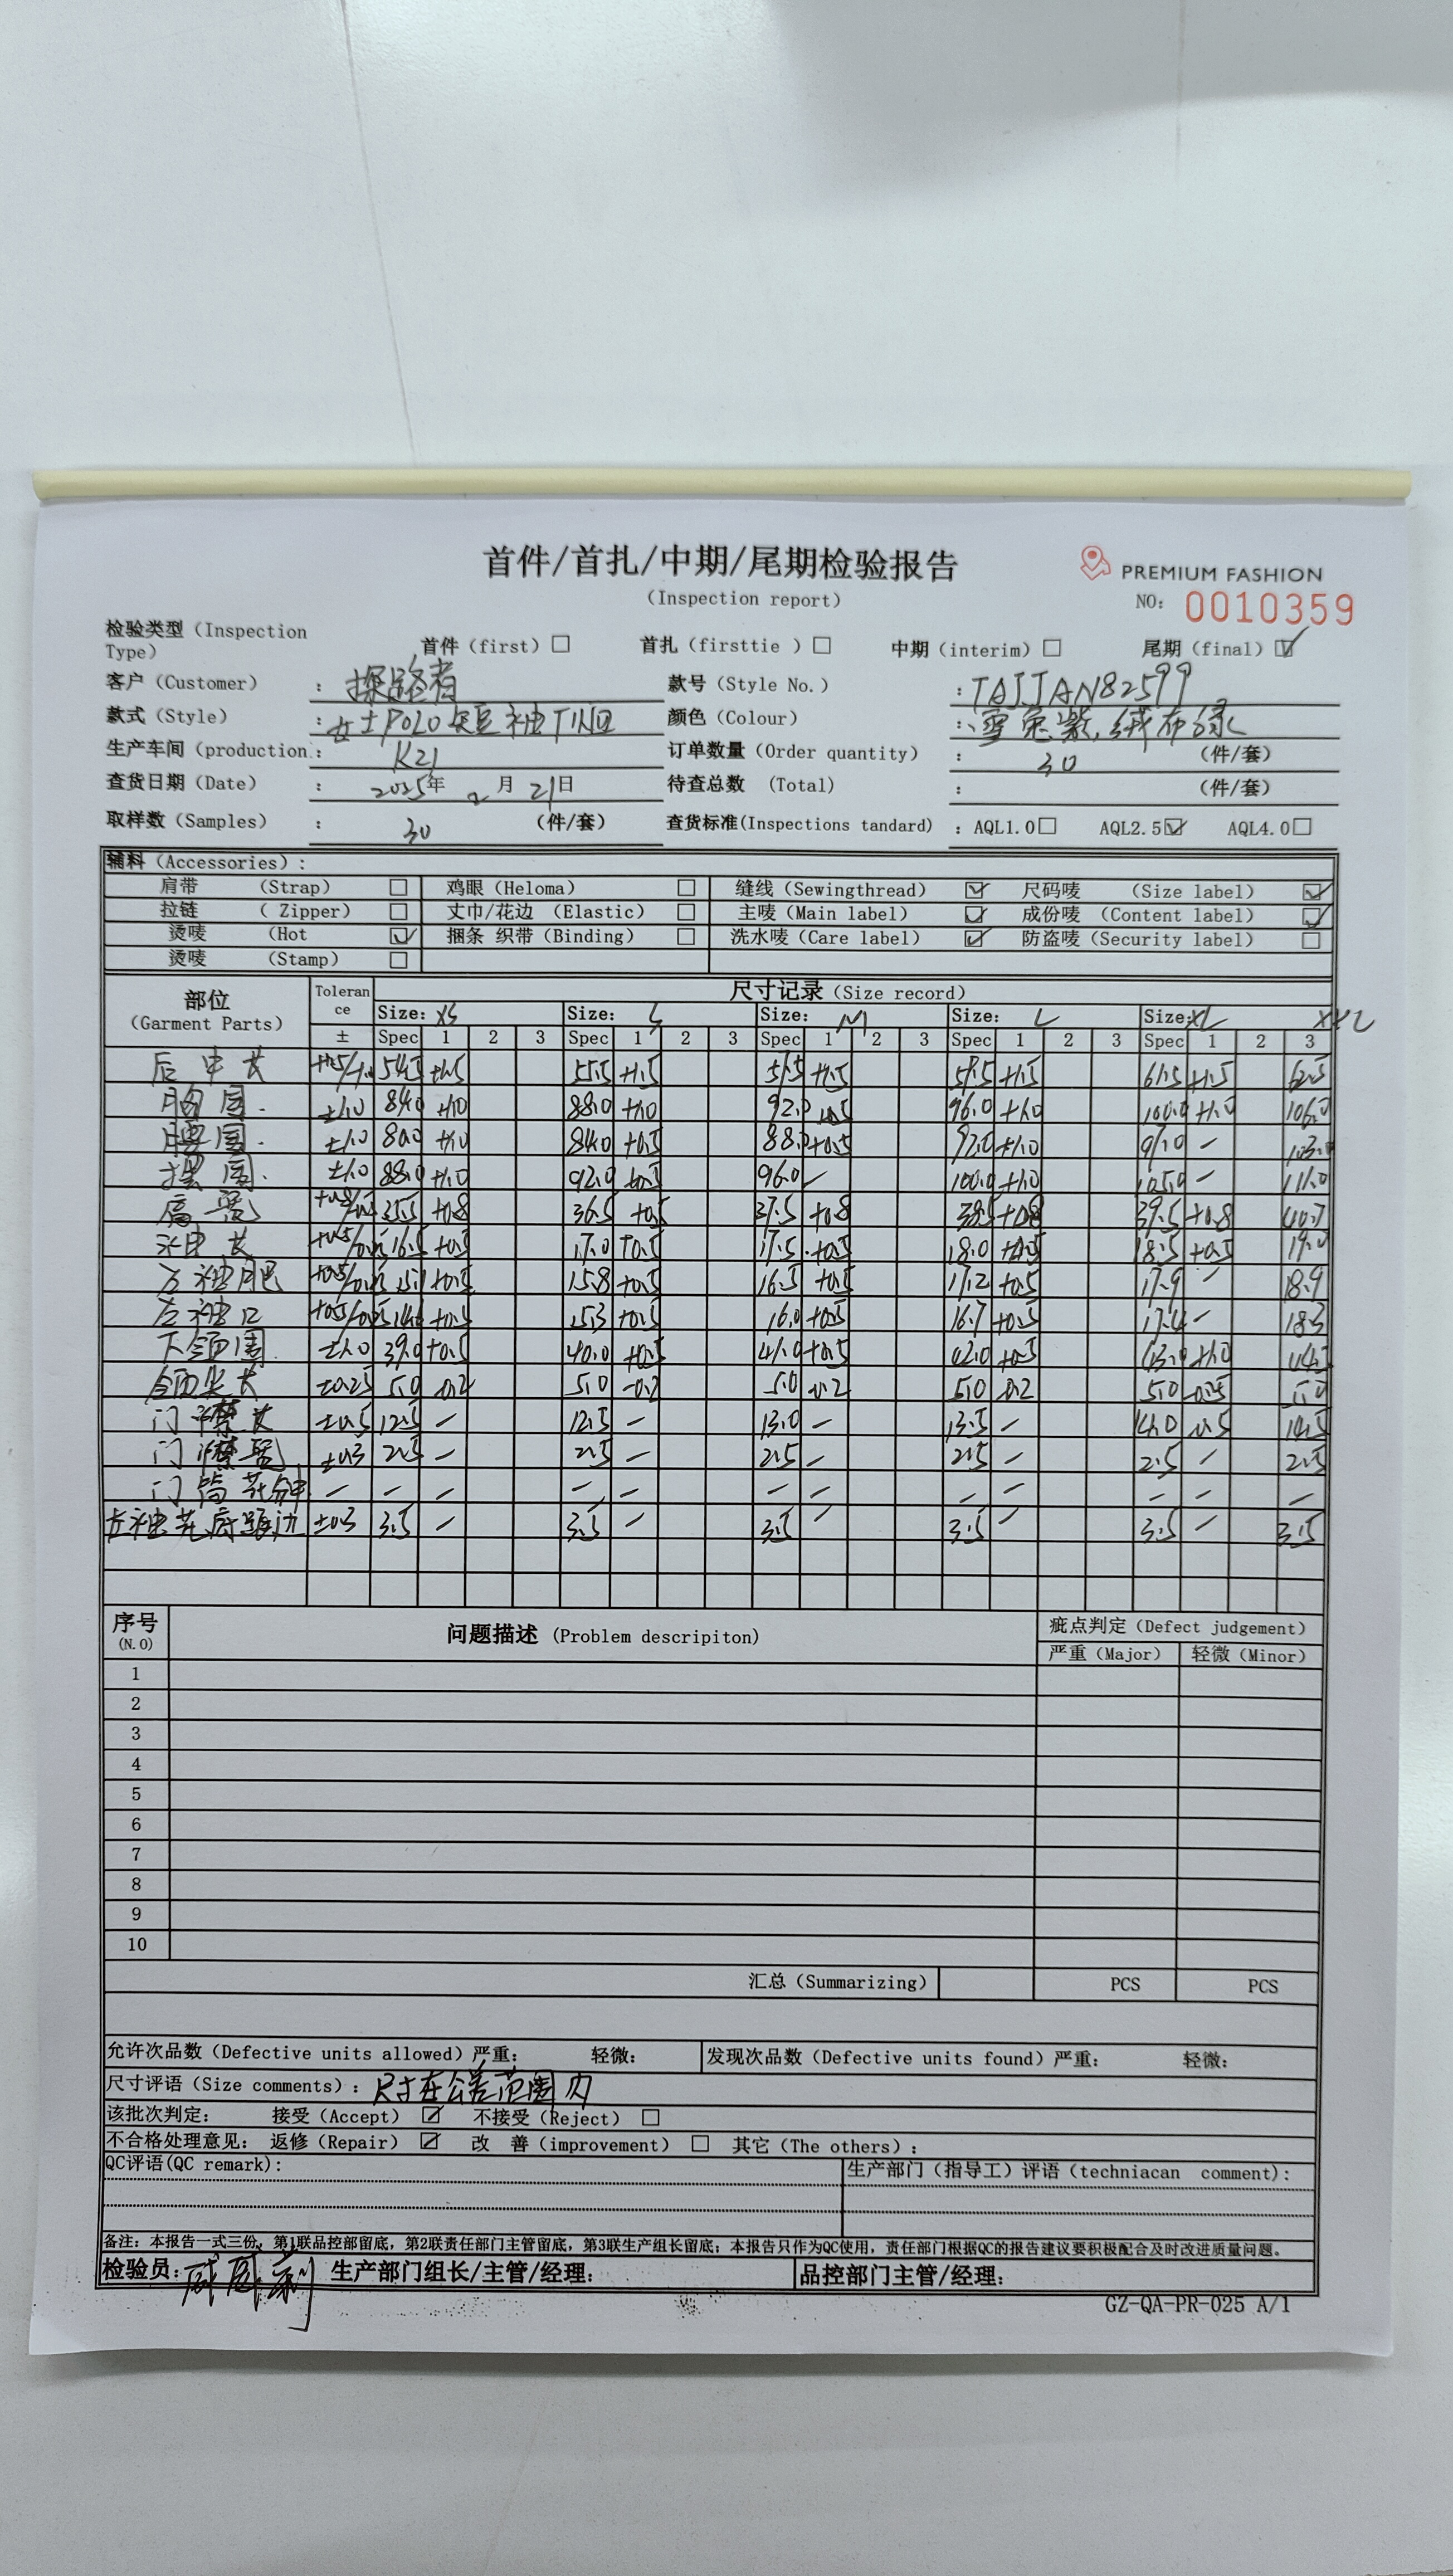 首件/首扎/中期/尾期检验报告
PREMIUM FASHION
(Inspection report)
NO: 0010359
检验类型 (Inspection Type) 首件 (first) □ 首扎 (firsttie ) □ 中期 (interim) □ 尾期 (final) ☑
客户 (Customer) : 探路者 款号 (Style No.) : TAJJAN82599
款式 (Style) : 女士POLO短袖T恤 颜色 (Colour) : 紫, 绒布绿
生产车间 (production : K21 订单数量 (Order quantity) : 30 (件/套)
查货日期 (Date) : 2025年 2 月 21日 待查总数 (Total) : (件/套)
取样数 (Samples) : 30 (件/套) 查货标准(Inspections tandard) : AQL1.0□ AQL2.5☑ AQL4.0□
辅料 (Accessories) :
肩带 (Strap) □ 鸡眼 (Heloma) □ 缝线 (Sewingthread) ☑ 尺码唛 (Size label) ☑
拉链 ( Zipper) □ 丈巾/花边 (Elastic) □ 主唛 (Main label) ☑ 成份唛 (Content label) ☑
烫唛 (Hot ☑ 捆条 织带 (Binding) □ 洗水唛 (Care label) ☑ 防盗唛 (Security label) □
烫唛 (Stamp) □
部位 (Garment Parts) Toleran ce 尺寸记录 (Size record)
Size: XS Size: S Size: M Size: L Size: XL XXL
± Spec 1 2 3 Spec 1 2 3 Spec 1 2 3 Spec 1 2 3 Spec 1 2 3
后中长 54.5 +1.5 55.5 +1.5 57.5 +1.5 59.5 +1.5 61.5 +1.5 62.5
胸围 ±1.0 84.0 +1.0 88.0 +1.0 92.0 96.0 +1.0 100.0 +1.0 106.0
腰围 ±1.0 80.0 +1.0 84.0 +0.5 88.0 +0.5 92.0 +1.0 97.0 - 103.0
摆围 ±1.0 88.0 +1.0 92.0 +0.5 96.0 - 100.0 +1.0 105.0 - 111.0
肩宽 35.5 +0.8 36.5 +0.5 37.5 +0.8 38.5 +0.8 39.5 +0.8 40.7
袖长 16.5 +0.5 17.0 +0.5 17.5 +0.5 18.0 +0.5 18.5 +0.5 19.0
袖肥 15.1 +0.5 15.8 +0.5 16.5 +0.5 17.2 +0.5 17.9 - 18.9
袖口 14.6 +0.5 15.3 +0.5 16.0 +0.5 16.7 +0.5 17.4 - 18.3
下领围 ±1.0 39.0 +0.5 40.0 +0.5 41.0 +0.5 42.0 +0.5 43.0 +1.0 44.5
领尖长 ±0.25 5.0 -0.2 5.0 -0.2 5.0 -0.2 5.0 -0.2 5.0 -0.25 5.0
门襟长 ±0.5 12.5 - 12.5 - 13.0 - 13.5 - 14.0 14.5
门襟宽 ±0.3 2.5 - 2.5 - 2.5 - 2.5 - 2.5 - 2.5
门筒 - - - - - - - - - - - -
±0.3 3.5 - 3.5 - 3.5 - 3.5 - 3.5 - 3.5
序号 (N.O) 问题描述 (Problem descripiton) 疵点判定 (Defect judgement)
严重 (Major) 轻微 (Minor)
1
2
3
4
5
6
7
8
9
10
汇总 (Summarizing) PCS PCS
允许次品数 (Defective units allowed) 严重: 轻微: 发现次品数 (Defective units found) 严重: 轻微:
尺寸评语 (Size comments) : 尺寸在公差范围内
该批次判定: 接受 (Accept) ☑ 不接受 (Reject) □
不合格处理意见: 返修 (Repair) ☑ 改 善 (improvement) □ 其它 (The others) :
QC评语(QC remark): 生产部门 (指导工) 评语 (techniacan comment):
备注: 本报告一式三份, 第1联品控部留底, 第2联责任部门主管留底, 第3联生产组长留底; 本报告只作为QC使用, 责任部门根据QC的报告建议要积极配合及时改进质量问题。
检验员: 生产部门组长/主管/经理: 品控部门主管/经理:
GZ-QA-PR-025 A/1